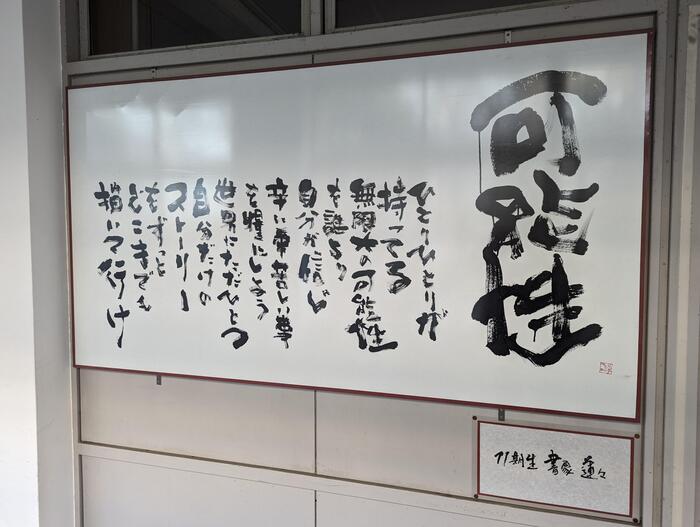 可能性
ひとりひとりが
持ってる
無限大の可能性
を誰より
自分が信じ
辛い事苦しい事
を糧にしよう
世界にただひとつ
自分だけの
ストーリー
をずっと
どこまでも
描いて行け
71期生 書家 蓮々